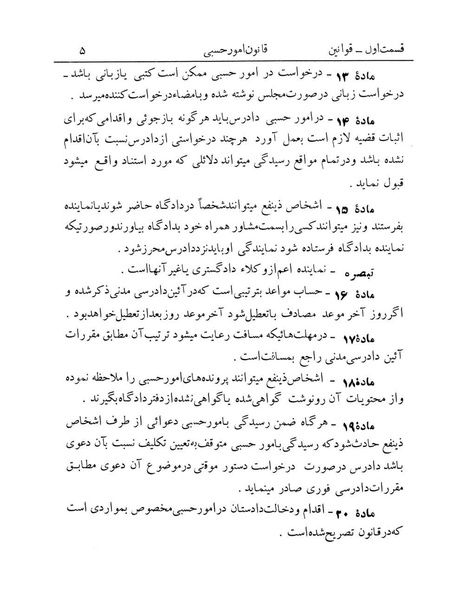 قسمت اول ــ قوانین    قانون امور حسبی    ۵
مادهٔ ۱۳ ــ درخواست در امور حسبی ممکن است کتبی یا زبانی باشد ــ
درخواست زبانی درصورت مجلس نوشته شده و بامضاء درخواست کننده میرسد .
مادهٔ ۱۴ ــ در امور حسبی دادرس باید هرگونه بازجوئی و اقدامی که برای
اثبات قضیه لازم است بعمل آورد هرچند درخواستی از دادرس نسبت بآن اقدام
نشده باشد ودرتمام مواقع رسیدگی میتواند دلائلی که مورد استناد واقع میشود
قبول نماید .
مادهٔ ۱۵ ــ اشخاص ذینفع میتوانند شخصاً در دادگاه حاضر شوند یا نماینده
بفرستند و نیز میتوانند کسی را بسمت مشاور همراه خود بدادگاه بیاورند و در صورتیکه
نماینده بدادگاه فرستاده شود نمایندگی او باید نزد دادرس محرز شود .
تبصره ــ نماینده اعم از وکلاء دادگستری یا غیر آنها است .
مادهٔ ۱۶ ــ حساب مواعد بترتیبی است که در آئین دادرسی مدنی ذکر شده و
اگر روز آخر موعد مصادف با تعطیل شود آخر موعد روز بعد از تعطیل خواهد بود .
مادهٔ ۱۷ ــ درمهلت‌هائیکه مسافت رعایت میشود ترتیب آن مطابق مقررات
آئین دادرسی مدنی راجع بمسافت است .
مادهٔ ۱۸ ــ اشخاص ذینفع میتوانند پرونده‌های امور حسبی را ملاحظه نموده
و از محتویات آن رونوشت گواهی شده یا گواهی نشده از دفتر دادگاه بگیرند .
مادهٔ ۱۹ ــ هرگاه ضمن رسیدگی بامور حسبی دعوائی از طرف اشخاص
ذینفع حادث شود که رسیدگی بامور حسبی متوقف به تعیین تکلیف نسبت بآن دعوی
باشد دادرس درصورت درخواست دستور موقتی در موضوع آن دعوی مطابق
مقررات دادرسی فوری صادر مینماید .
مادهٔ ۲۰ ــ اقدام و دخالت دادستان در امور حسبی مخصوص بمواردی است
که در قانون تصریح شده است .